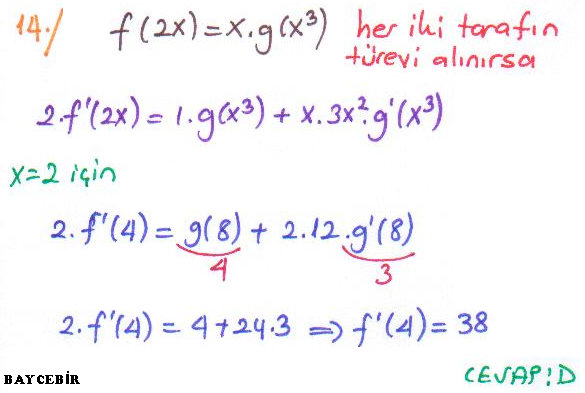 14./ f(2x)=x.g(x³) her iki tarafın
türevi alınırsa
2.f'(2x)=1.g(x³)+x.3x².g'(x³)
x=2 için
2.f'(4)=g(8)+2.12.g'(8)
4 3
2.f'(4)=4+24.3 ⇒ f'(4)=38
BAYCEBİR CEVAP:D